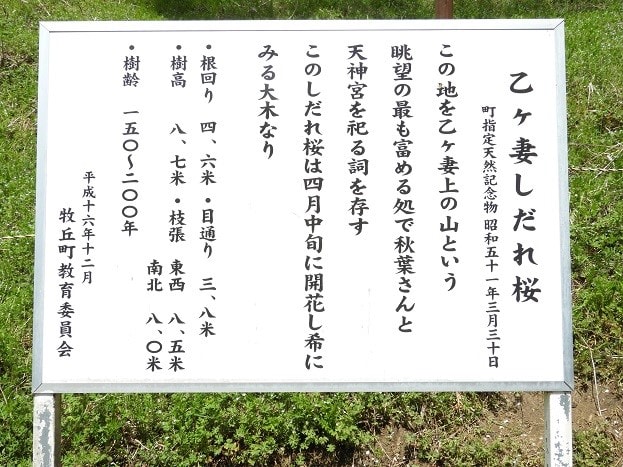 乙ヶ妻しだれ桜
町指定天然記念物 昭和五十一年三月三十日
この地を乙ヶ妻上の山という
眺望の最も富める処で秋葉さんと
天神宮を祀る詞を存す
このしだれ桜は四月中旬に開花し希に
みる大木なり
・根回り 四、六米・目通り 三、八米
・樹高 八、七米・枝張 東西 八、五米
南北 八、〇米
・樹齢 一五〇〜二〇〇年
平成十六年十二月
牧丘町教育委員会